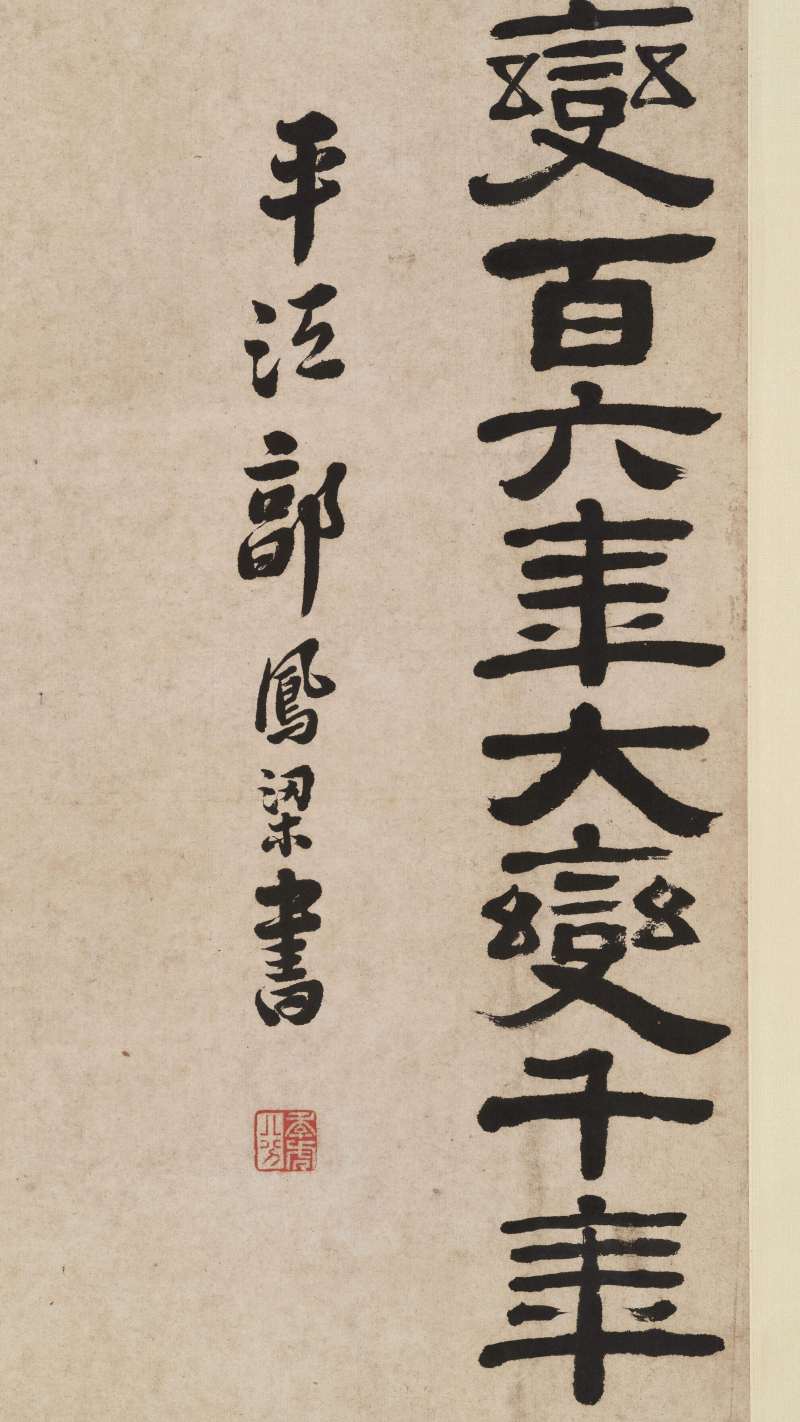 變百六年大變千年
平江郭鳳梁書